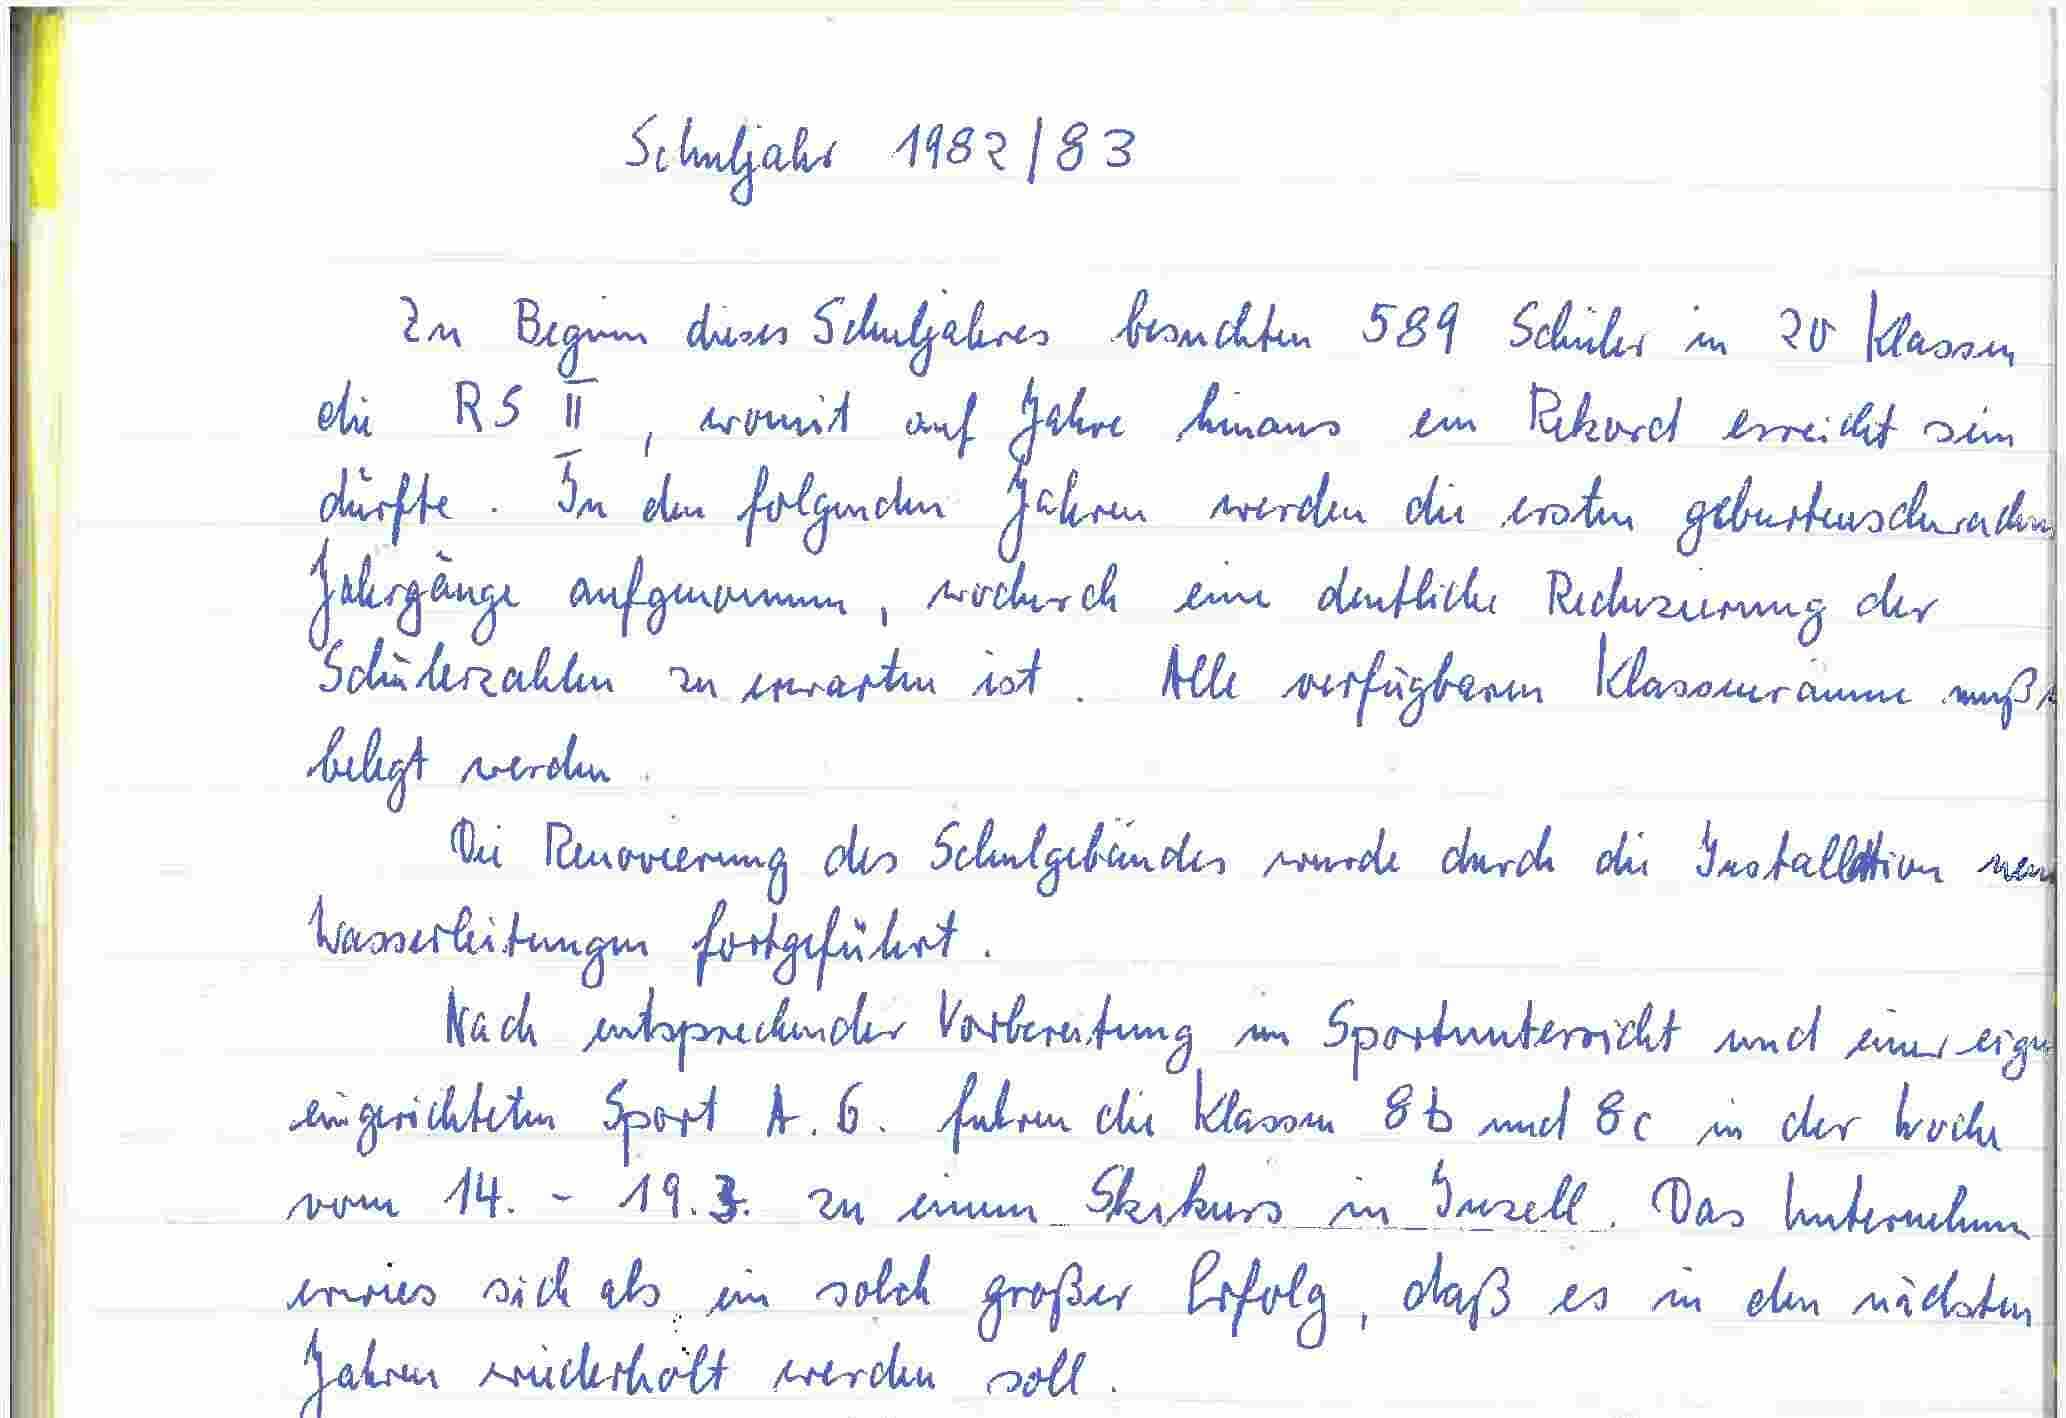 Schuljahr 1982/83
Zu Beginn dieses Schuljahres besuchten 589 Schüler in 20 Klassen
die RS II, womit auf Jahre hinaus ein Rekord erreicht sein
dürfte. In den folgenden Jahren werden die ersten geburtenschwachen
Jahrgänge aufgenommen, wodurch eine deutliche Reduzierung der
Schülerzahlen zu erwarten ist. Alle verfügbaren Klassenräume
belegt werden.
Die Renovierung des Schulgebäudes wurde durch die Installation
Wasserleitungen fortgeführt.
Nach entsprechender Vorbereitung im Sportunterricht und einer
eingerichteten Sport A.G. fuhren die Klassen 8b und 8c in der Woche
vom 14. - 19.3. zu einem Skikurs in Inzell. Das Unternehmen
erwies sich als ein solch großer Erfolg, daß es in den nächsten
Jahren wiederholt werden soll.